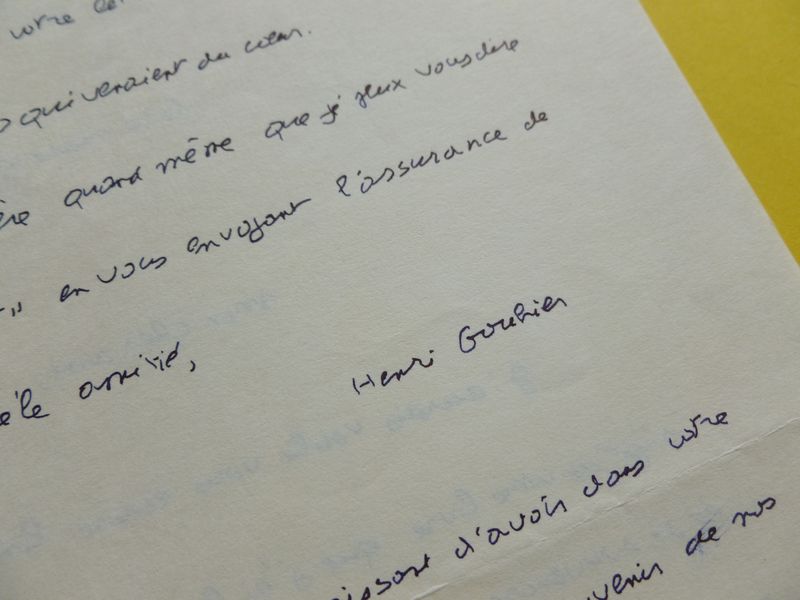 votre
qui venaient du cœur.
quand même que je veux vous dire
" en vous envoyant l'assurance de
amitié,
Henri Gouhier
d'avoir dans votre
de nos